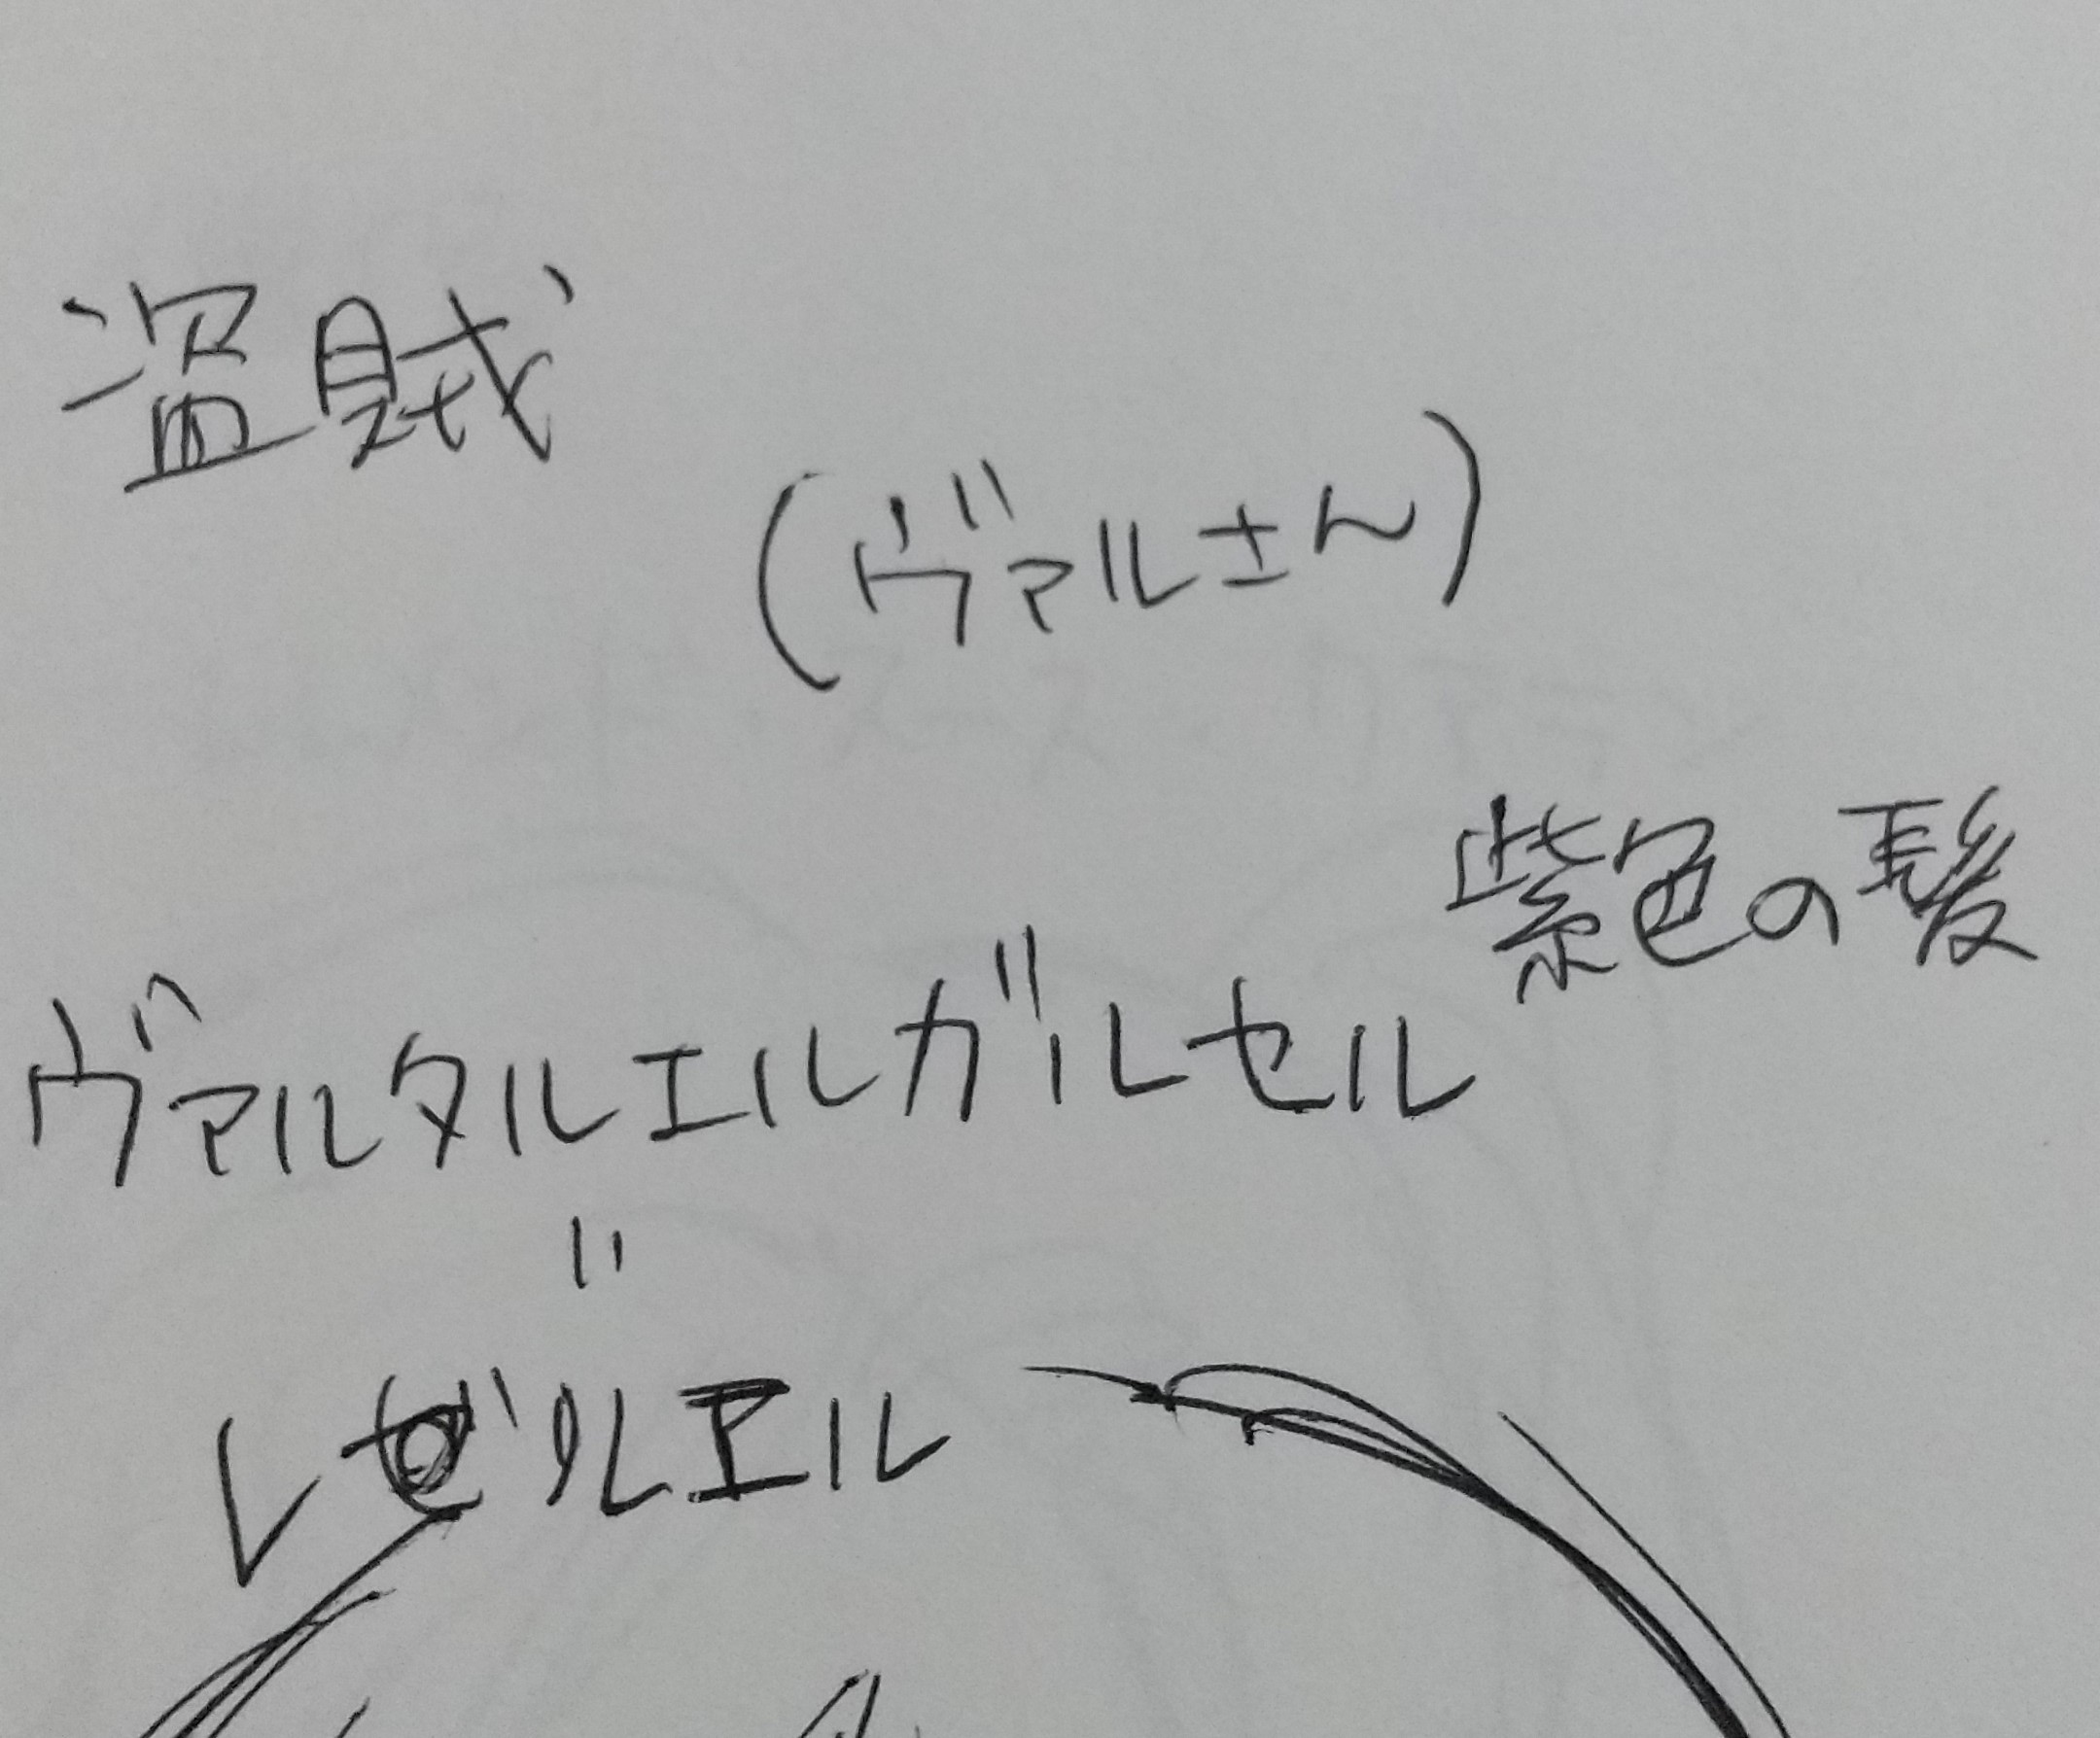 盗賊
(ヴァルさん)
紫色の髪
ヴァルタルエルガルセル
〃
レゼルエル